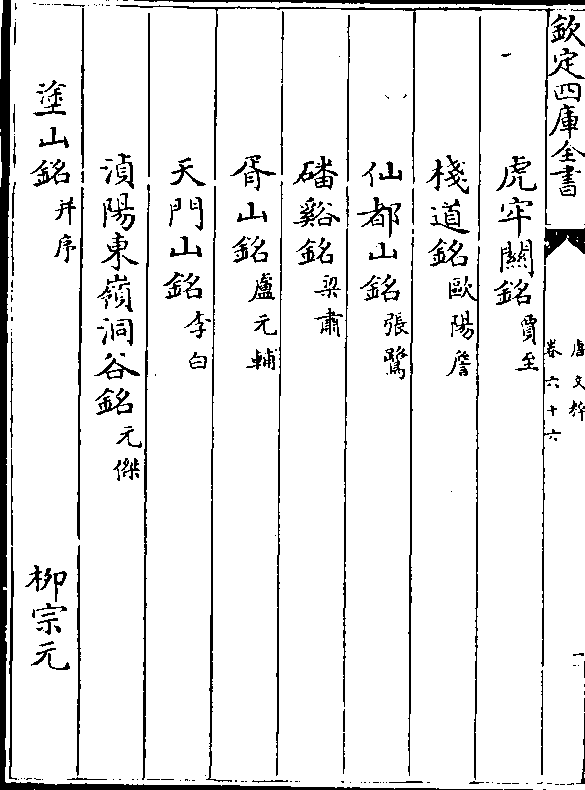 欽定四庫全書
唐文粹
卷六十六
一
虎牢關銘 賈至
棧道銘 歐陽詹
仙都山銘 張鷟
磻谿銘 梁肅
胥山銘 盧元輔
天門山銘 李白
湞陽東嶺洞谷銘 元傑
塗山銘 并序 柳宗元